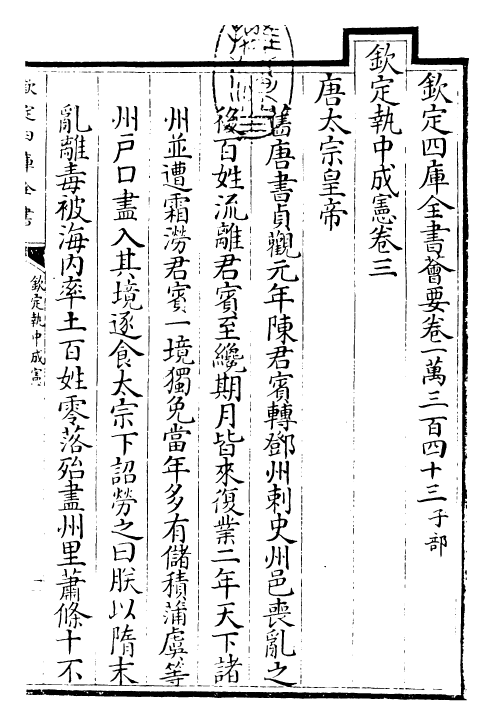 欽定四庫全書薈要卷一萬三百四十三子部
欽定執中成憲卷三
唐太宗皇帝
舊唐書貞觀元年陳君賓轉鄧州刺史州邑喪亂之
後百姓流離君賓至纔期月皆來復業二年天下諸
州並遭霜澇君賓一境獨免當年多有儲積蒲虞等
州戶口盡入其境逐食太宗下詔勞之曰朕以隋末
亂離毒被海內率土百姓零落殆盡州里蕭條十不
欽定四庫全書
欽定執中成憲
一